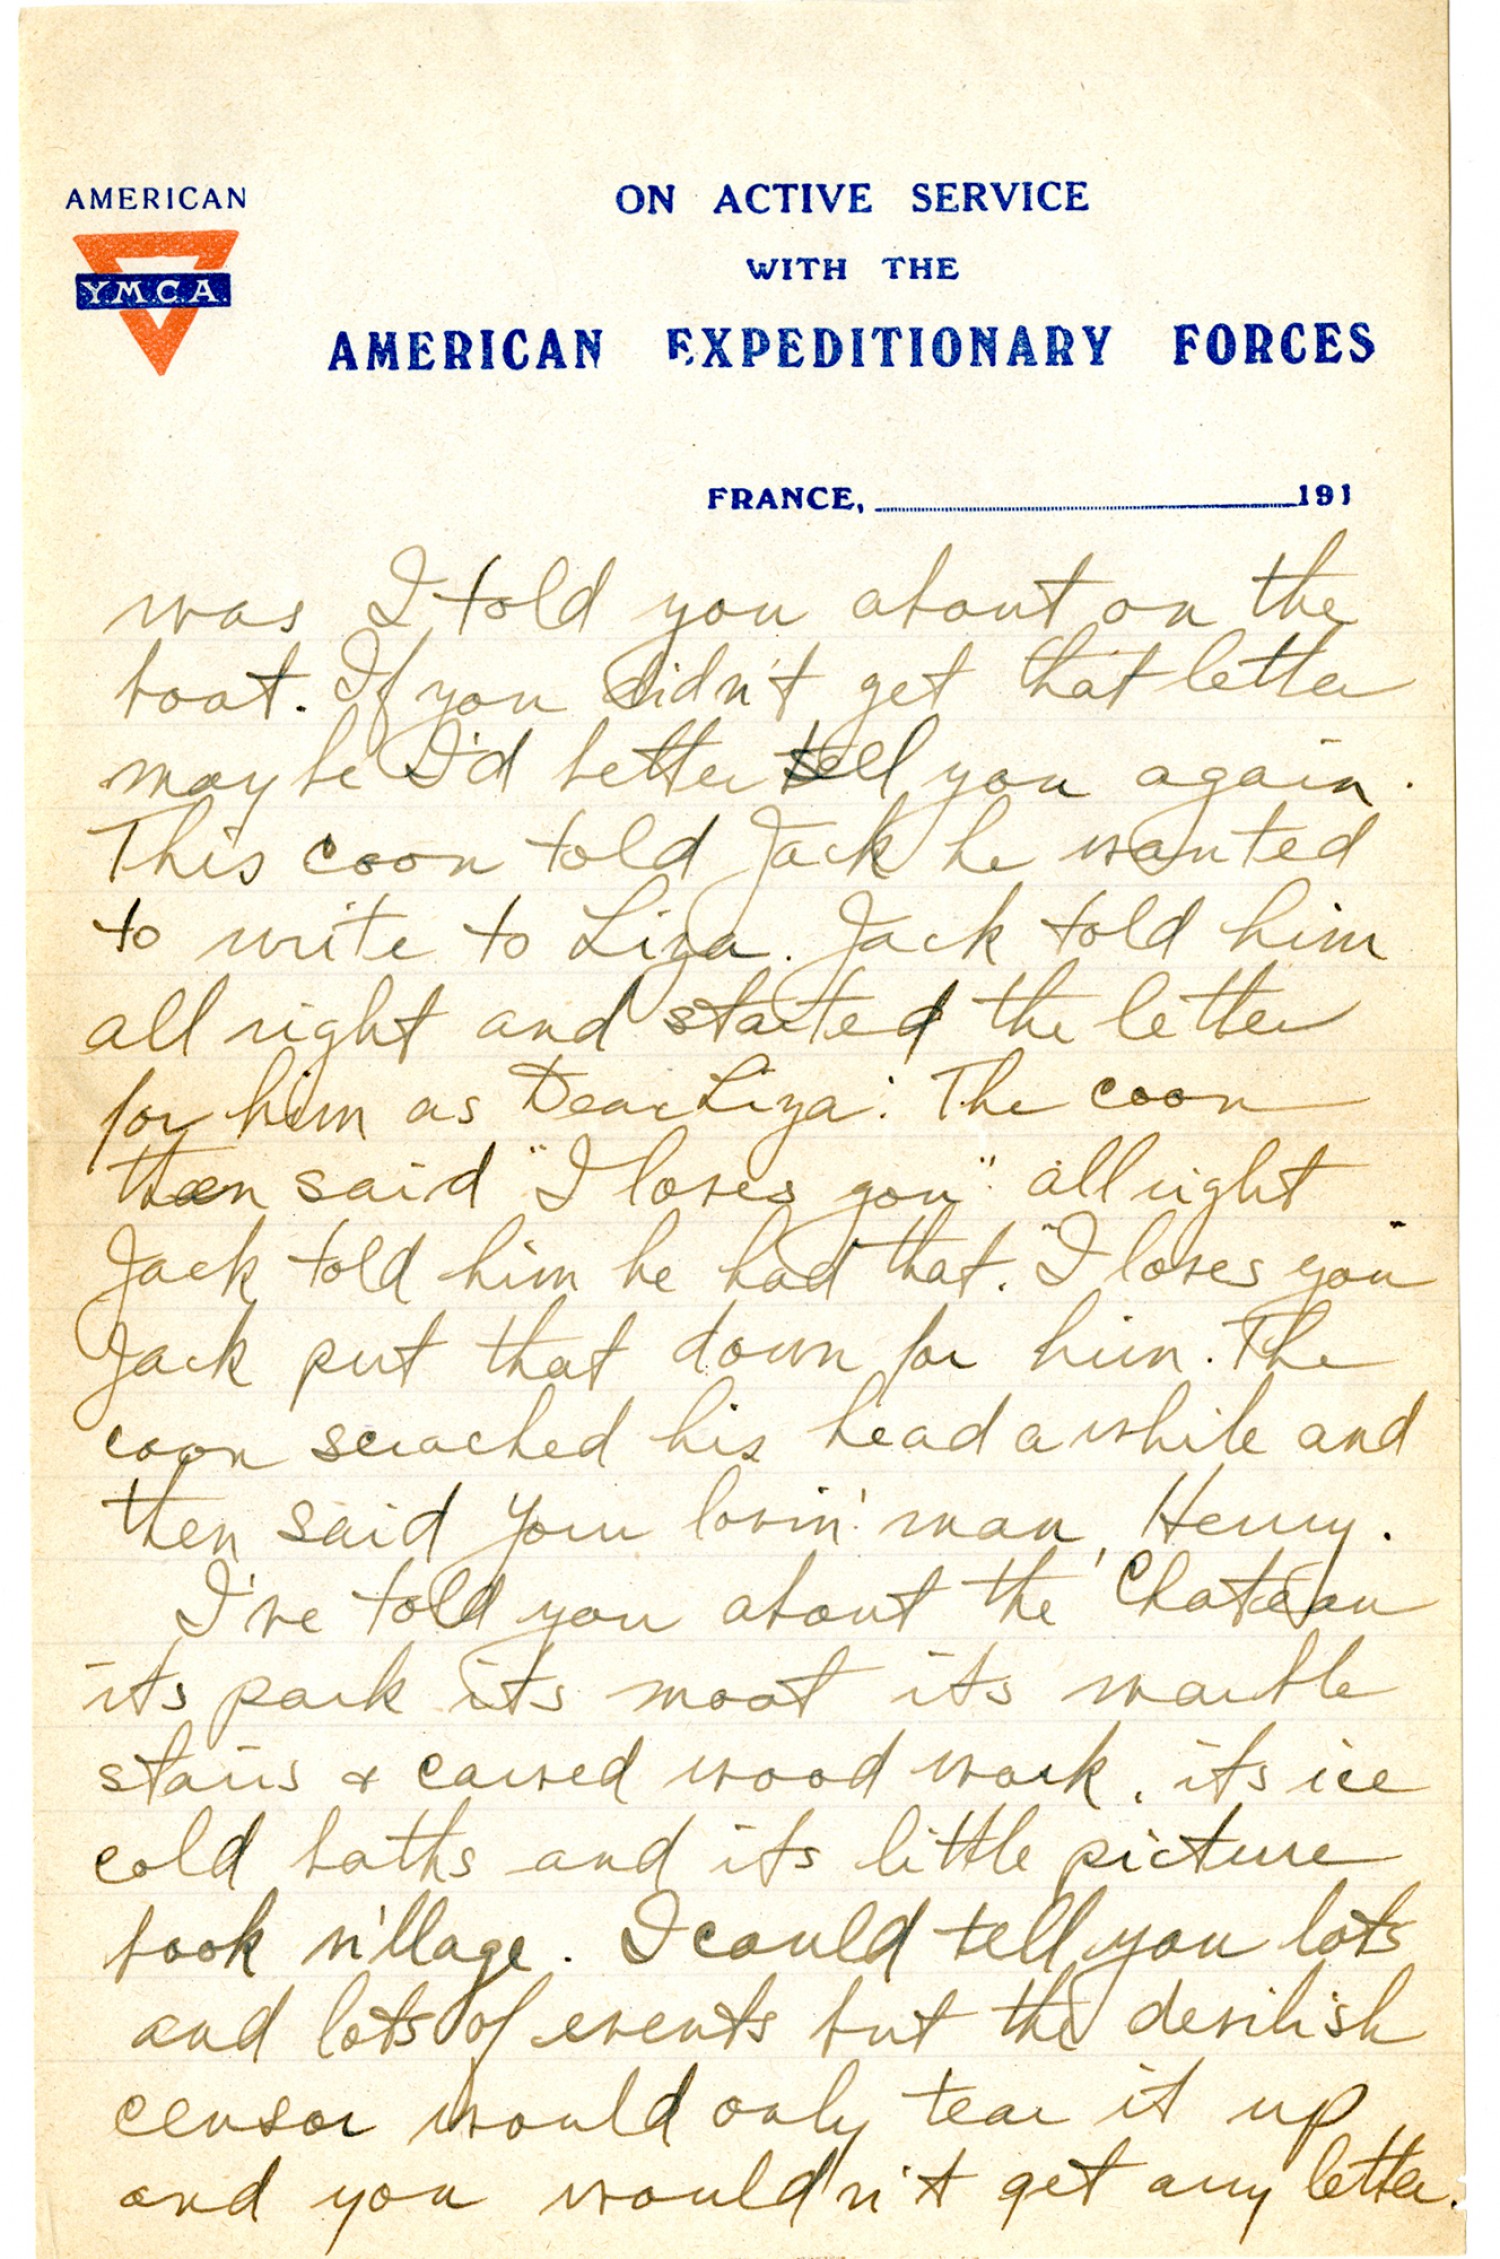 AMERICAN
YMCA
ON ACTIVE SERVICE
WITH THE
AMERICAN EXPEDITIONARY FORCES
FRANCE, 191
was I told you about on the
boat. If you didn't get that letter
maybe I'd better tell you again.
This coon told Jack he wanted
to write to Liza. Jack told him
all right and started the letter
for him as Dear Liza: The coon
then said "I loves you" all right
Jack told him he had that. "I loves you"
Jack put that down for him. The
coon scrached his head awhile and
then said Your lovin' man, Henry.
I've told you about the Chateau
its park its moat its marble
stairs & carved wood work, its ice
cold baths and its little picture
book village. I could tell you lots
and lots of events but the devilish
censor would only tear it up
and you wouldn't get any letter.